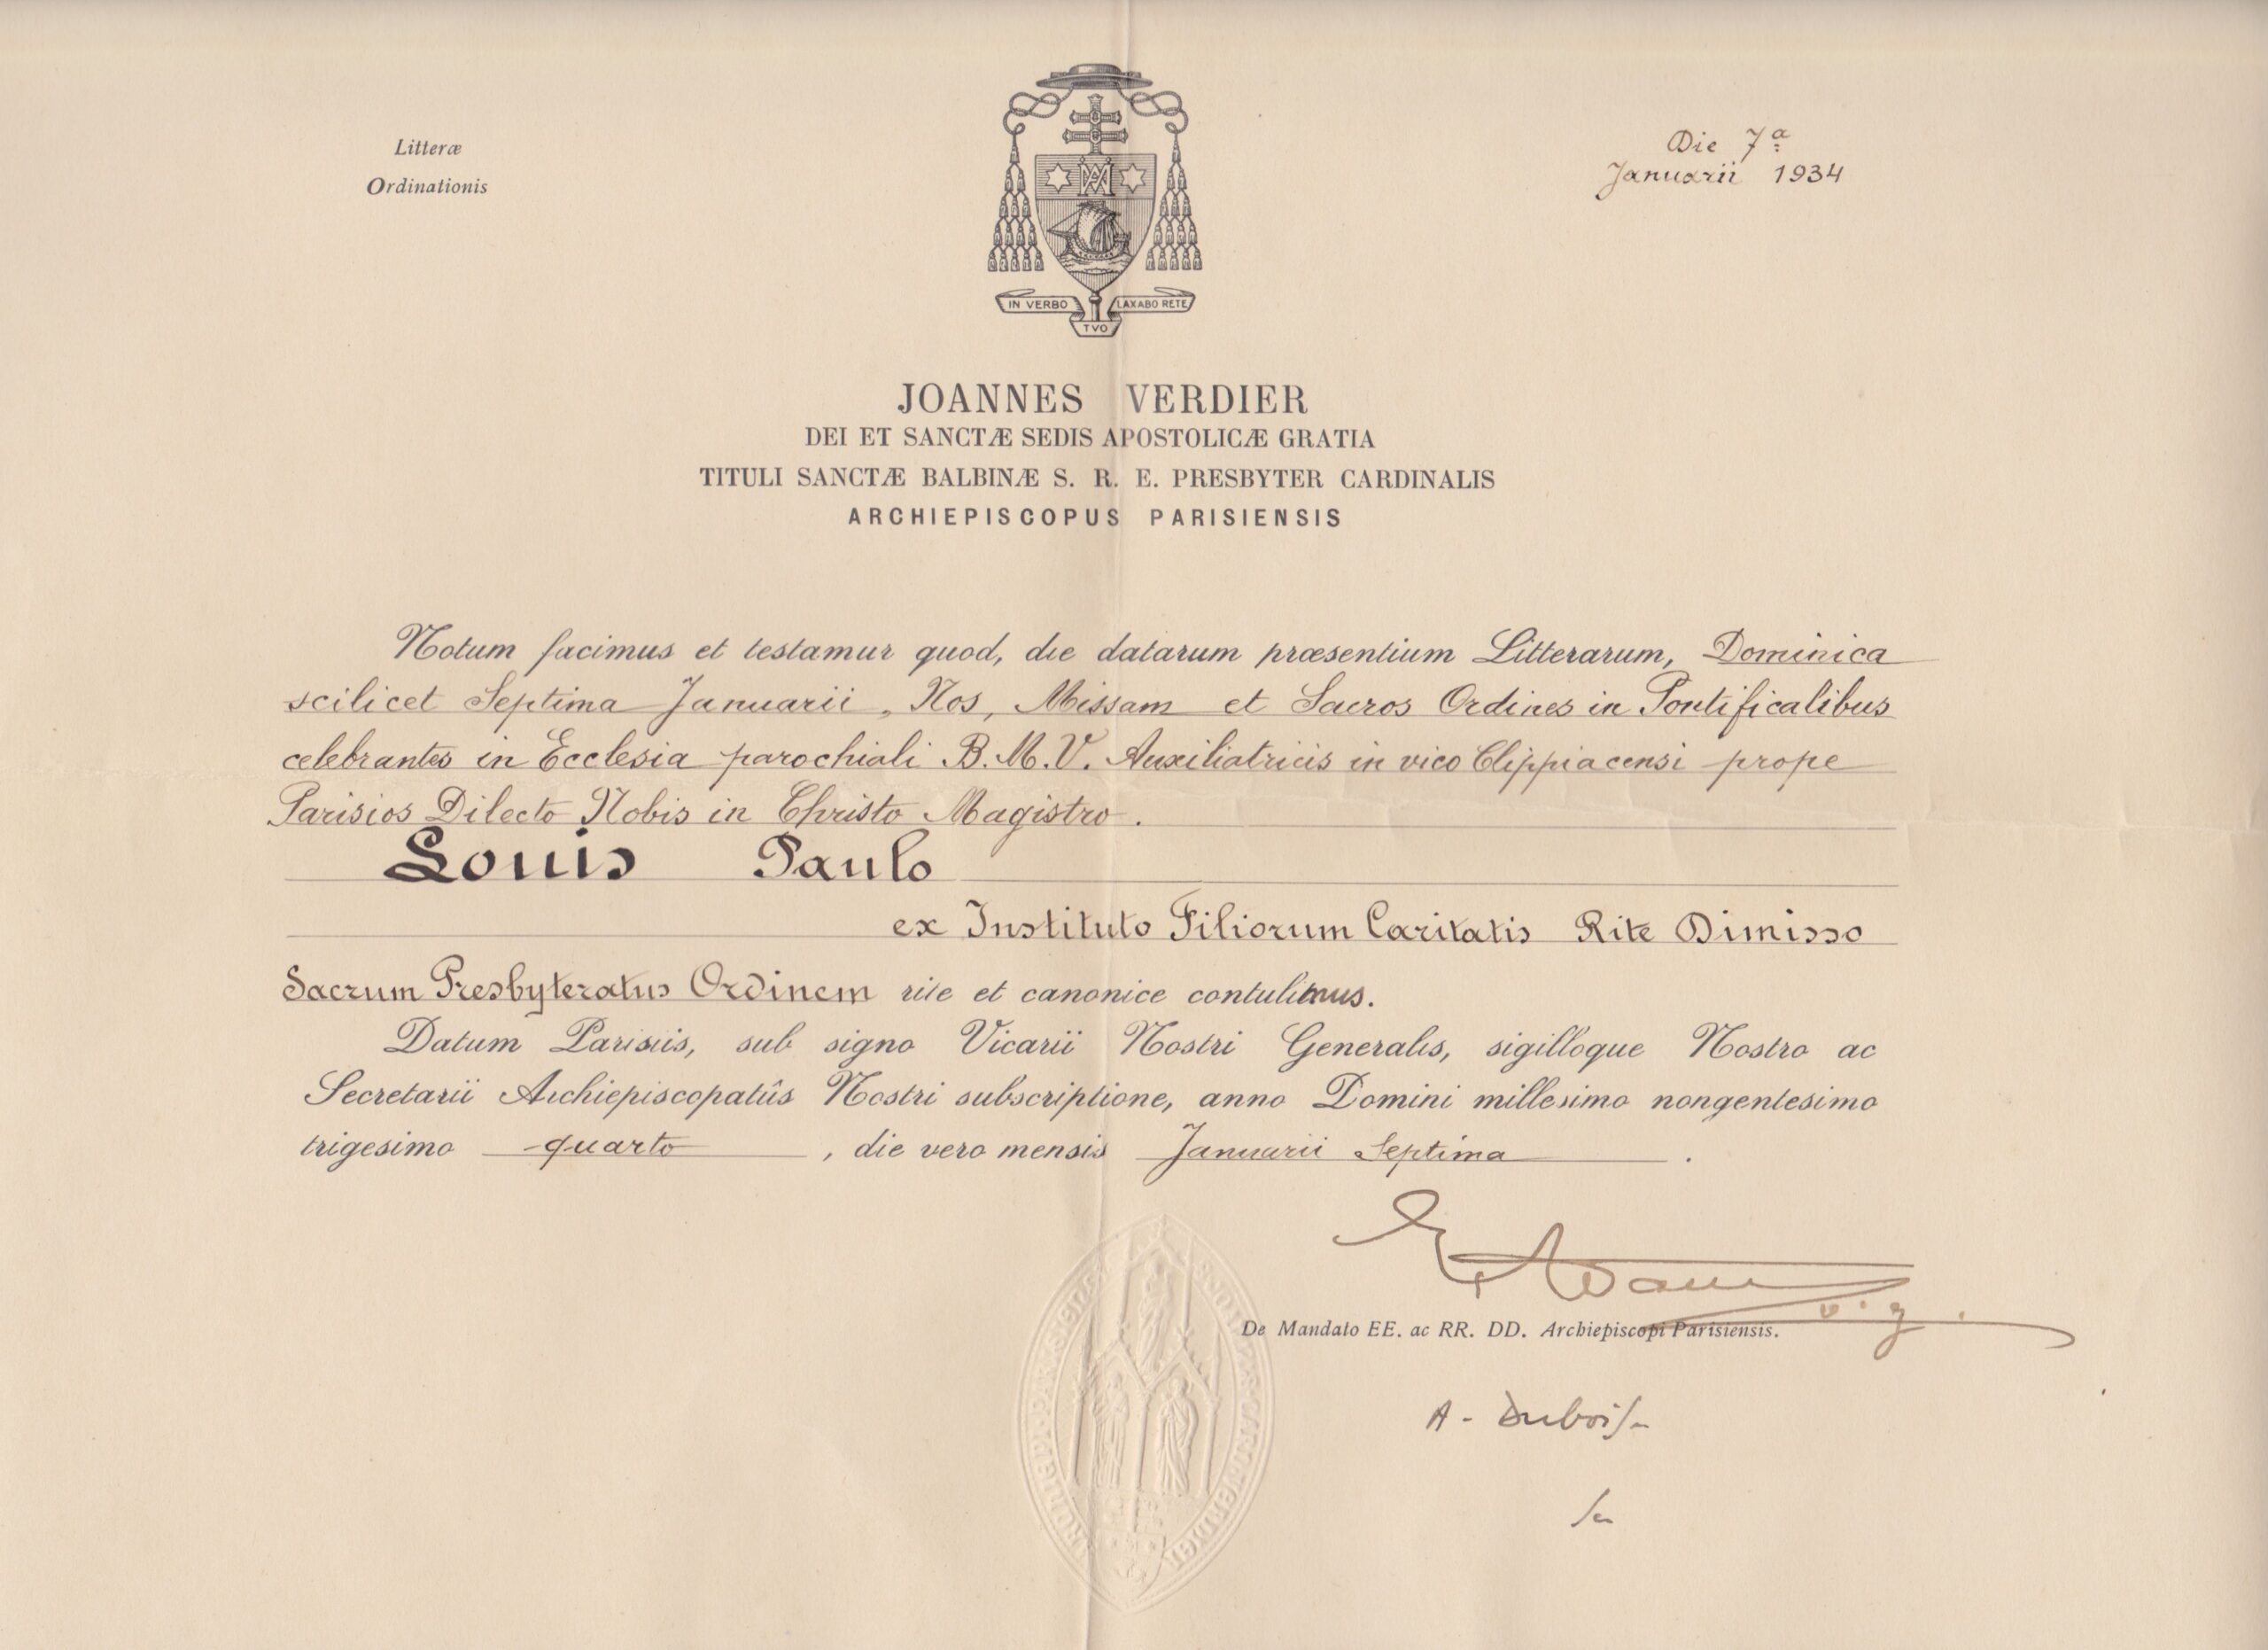 Litteræ
Ordinationis
Die 7ª
Januarii 1934
IN VERBO TVO LAXABO RETE
JOANNES VERDIER
DEI ET SANCTÆ SEDIS APOSTOLICÆ GRATIA
TITULI SANCTÆ BALBINÆ S. R. E. PRESBYTER CARDINALIS
ARCHIEPISCOPUS PARISIENSIS
Notum facimus et testamur quod, die datarum præsentium Litterarum, Dominica
scilicet Septima Januarii, Nos, Missam et Sacros Ordines in Pontificalibus
celebrantes in Ecclesia parochiali B.M.V. Auxiliatricis in vico Clippiacensi prope
Parisios Dilecto Nobis in Christo Magistro.
Louis Paulo
ex Instituto Filiorum Caritatis Rite Dimisso
Sacrum Presbyteratus Ordinem rite et canonice contulimus.
Datum Parisiis, sub signo Vicarii Nostri Generalis, sigilloque Nostro ac
Secretarii Archiepiscopatûs Nostri subscriptione, anno Domini millesimo nongentesimo
trigesimo quarto, die vero mensis Januarii Septima.
v. g.
De Mandato EE. ac RR. DD. Archiepiscopi Parisiensis.
A - Dubois